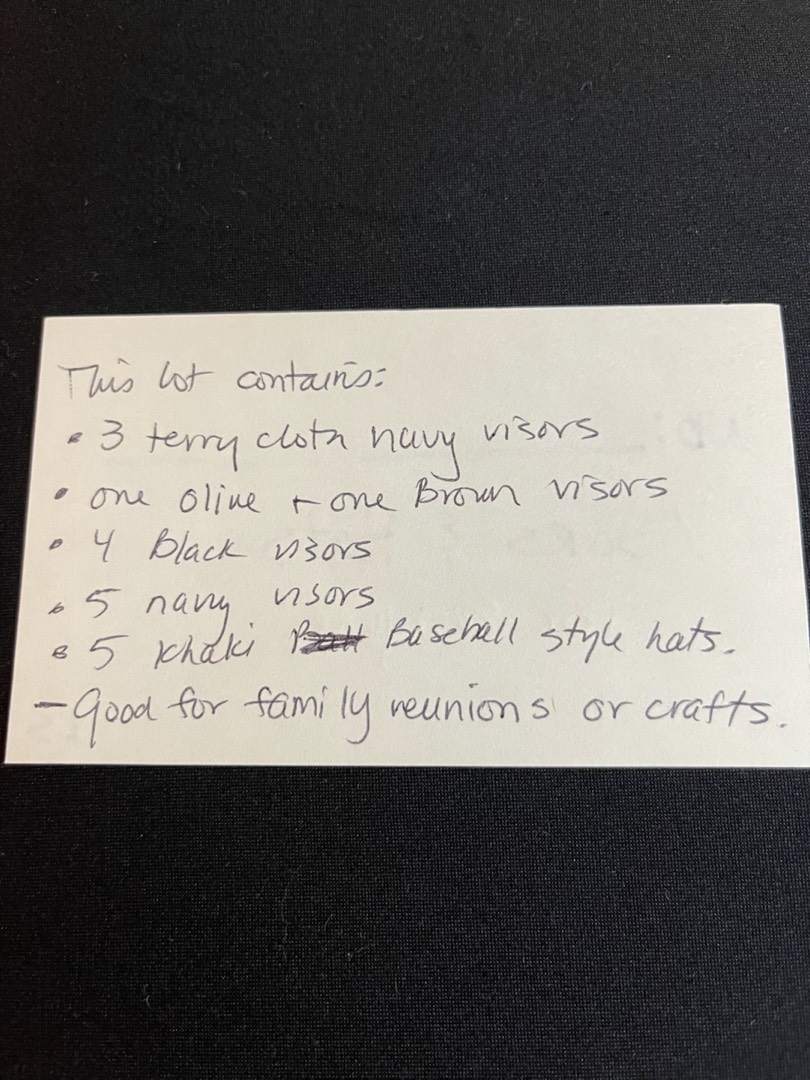 This lot contains:
• 3 terry cloth navy visors
• one olive + one Brown visors
• 4 Black visors
• 5 navy visors
• 5 khaki Baseball style hats.
- Good for family reunions or crafts.